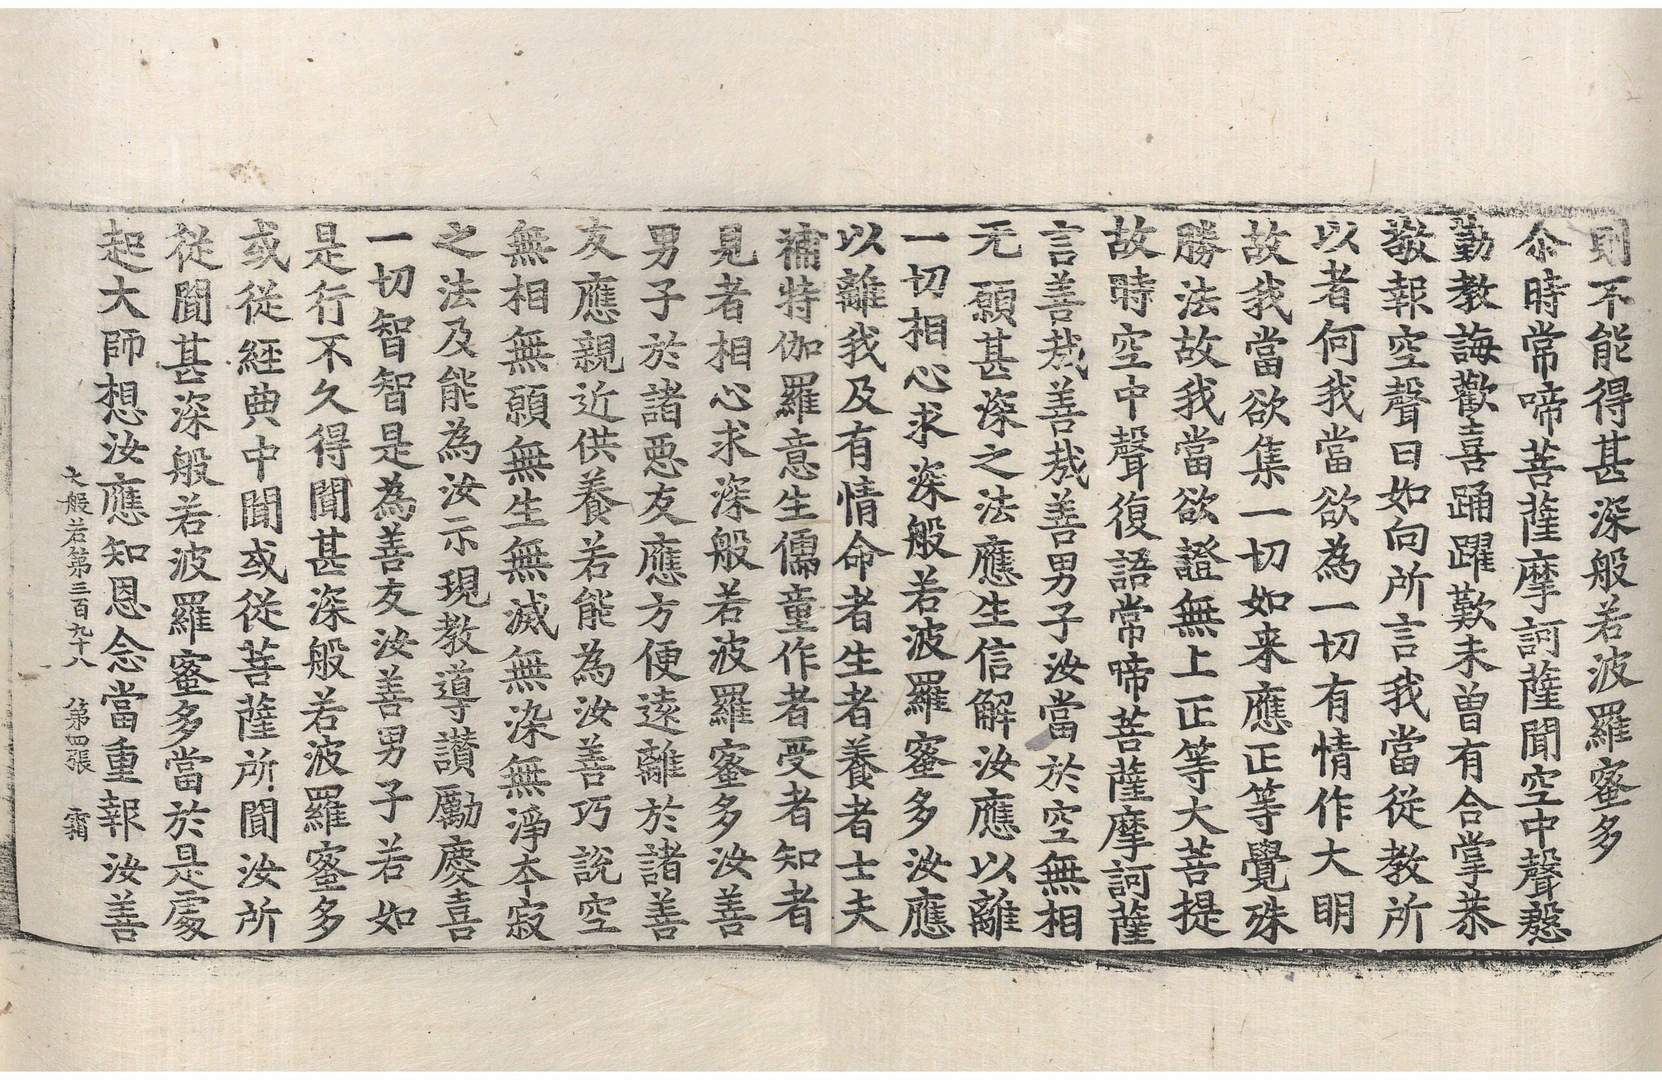 則不能得甚深般若波羅蜜多
尒時常啼菩薩摩訶薩聞空中聲慇
勤教誨歡喜踊躍歎未曾有合掌恭
敬報空聲曰如向所言我當從教所
以者何我當欲為一切有情作大明
故我當欲集一切如来應正等覺殊
勝法故我當欲證無上正等大菩提
故時空中聲復語常啼菩薩摩訶薩
言善哉善哉善男子汝當於空無相
无願甚深之法應生信解汝應以離
一切相心求深般若波羅蜜多汝應
以離我及有情命者生者養者士夫
補特伽羅意生儒童作者受者知者
見者相心求深般若波羅蜜多汝善
男子於諸惡友應方便遠離於諸善
友應親近供養若能為汝善巧說空
無相無願無生無滅無染無淨本寂
之法及能為汝示現教導讚勵慶喜
一切智智是為善友汝善男子若如
是行不久得聞甚深般若波羅蜜多
或從經典中聞或從菩薩所聞汝所
從聞甚深般若波羅蜜多當於是處
起大師想汝應知恩念當重報汝善
大般若第三百九十八 第四張 霜